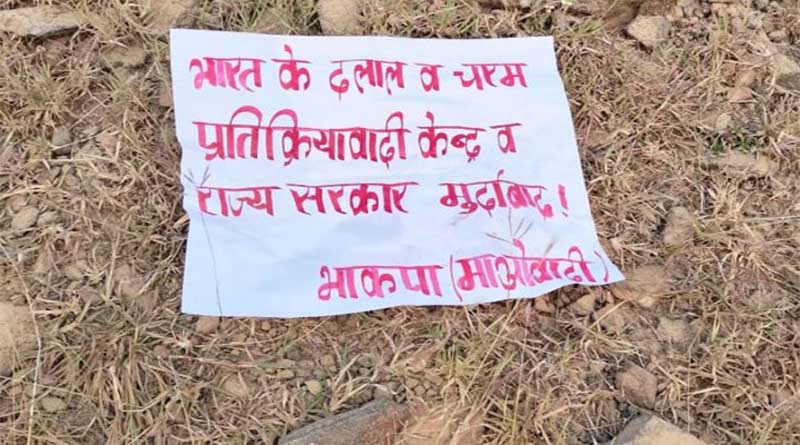 भारत के दलाल व चरम
प्रतिक्रियावादी केन्द्र व
राज्य सरकार मुर्दाबाद!
भाकपा (माओवादी)